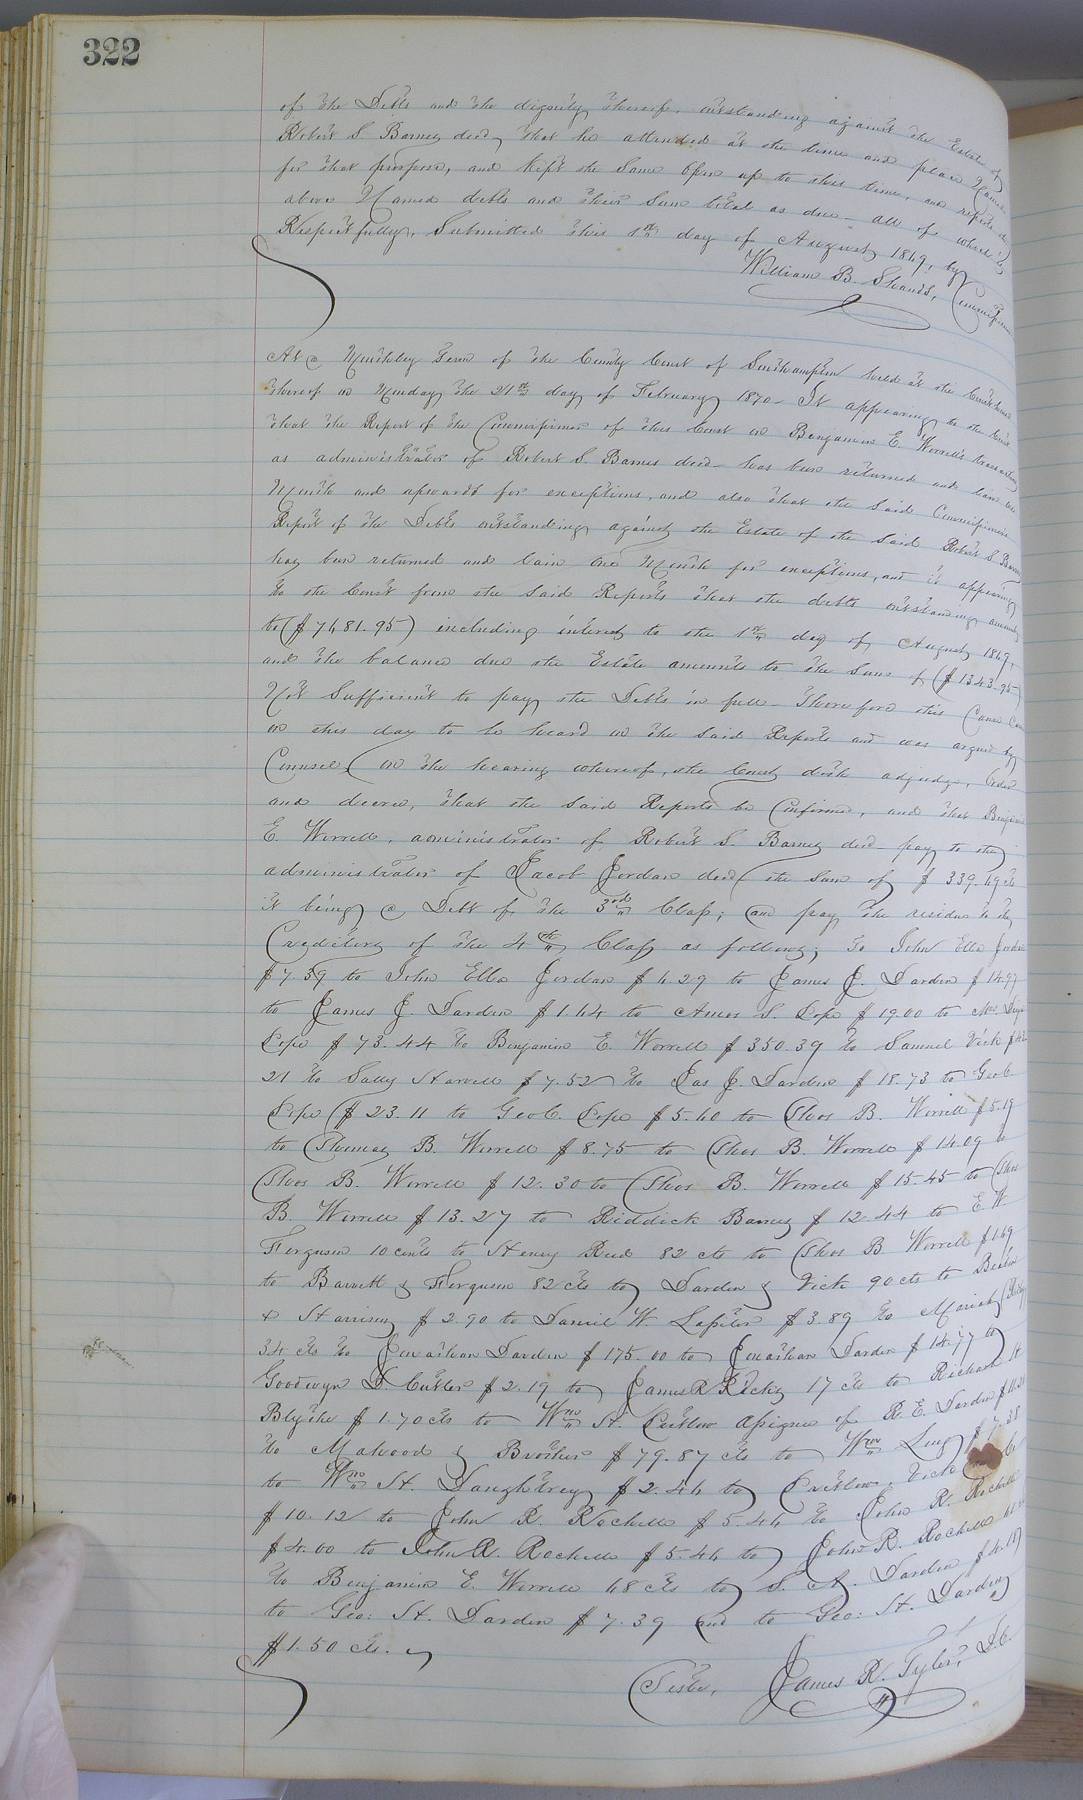 322
of the Debts and the dignity thereof, outstanding against the Estate of
Robert S Barnes decd, that he attended at the time and place Named
for that purpose, and kept the same open up to this time, and reports the
above Named debts and their sum total as due – all of which is
Respectfully, Submitted this 1st day of August, 1869, by
William B. Shands, Commissioner
At a Monthly Term of the County Court of Southampton held at the Courthouse
thereof on Monday the 21st day of February 1870 – It appearing to the Court
that the Report of the Commissioner of this Court on Benjamin E. Worrell's transactions
as administrator of Robert S. Barnes decd – has been returned and lain one
Month and upwards for exceptions, and also that the said Commissioners
Report of the Debts outstanding against the Estate of the said Robert S. Barnes
has been returned and lain one Month for exceptions, and it appearing
to the Court from the said Reports that the debts outstanding amounts
to ($7481.95) including interest to the 1st day of August 1869,
and the balance due the Estate amounts to the Sum of ($1343.95)
Not Sufficient to pay the Debts in full – Therefore this Cause came
on this day to be heard on the said Reports and was argued by
Counsel, on the hearing whereof, the Court doth adjudge, Order
and decree, that the said Reports be Confirmed, and that Benjamin
E. Worrell, administrator of Robert S. Barnes decd – pay to the
administrator of Jacob Jordan decd the sum of $339.69 cts
it being a Debt of the 3rd Class; and pay the residue to the
Creditors of the 4th Class as follows; to John Ella Jordan
$7.39 to John Ella Jordan $6.29 to James J. Darden $14.97
to James J. Darden $1.64 to Amos S. Cope $19.00 to
Cope $73.44 to Benjamin E. Worrell $350.39 to Samuel Vick
21 to Sally Harrell $7.52 to Jas J. Darden $18.73 to Geo C.
Cope $23.11 to Geo C. Cope $5.60 to Thos B. Worrell $5.19
to Thomas B. Worrell $8.75 to Thos B. Worrell $14.09 to
Thos B. Worrell $12.30 to Thos B. Worrell $15.45 to Thos
B. Worrell $13.27 to Riddick Barnes $12.44 to E W
Ferguson 10 cents to Henry Reed 82 cts to Thos B Worrell $1.69
to Barrett & Ferguson 82 cts to Darden & Vick 90 cts to
& Harrison $2.90 to Daniel W. Lassiter $3.89 to Mariah
34 cts to Jonathan Darden $175.00 to Jonathan Darden $14.77 to
Goodwyn D. Cutler $2.19 to James R Ricks 17 cts to Richard H
Blythe $1.70 cts to Wm H. Pretlow assignee of R. E. Darden
to Mahood & Brother $79.87 cts to Wm Long $7.38
to Wm H. Daughtrey $2.46 to Pretlow, Vick & Co
$10.12 to John R. Rochelle $5.46 to John R. Rochelle
$4.00 to John R. Rochelle $5.46 to John R. Rochelle
to Benjamin E. Worrell 68 cts to S. A. Darden $4.19
to Geo: H. Darden $7.39 and to Geo: H. Darden
$1.50 cts.
Teste, James R. Tyler, D.C.